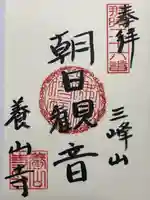 奉拝
三峰山
朝日観音
養山寺